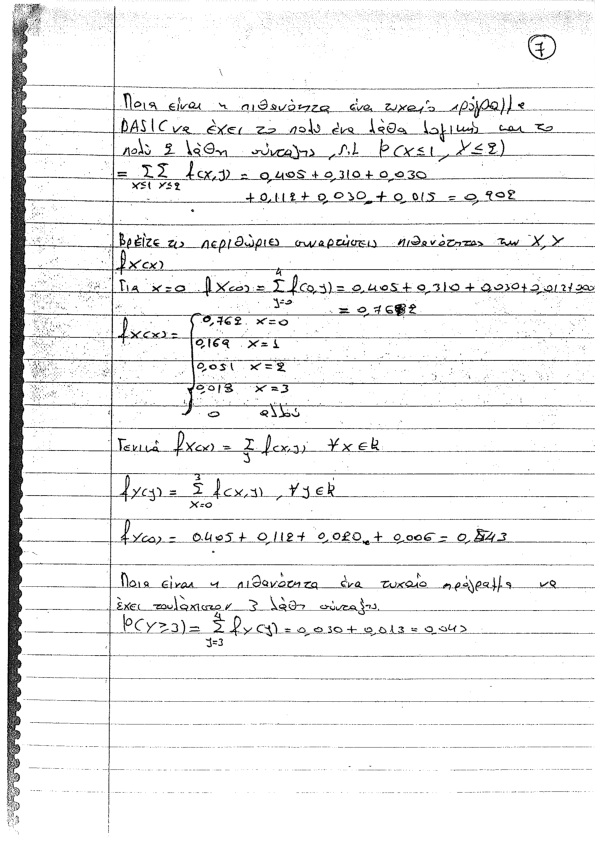 7
Ποια είναι η πιθανότητα ένα τυχαίο πρόγραμμα
BASIC να έχει το πολύ ένα λάθος λογικής και το
πολύ 2 λάθη σύνταξης, δ.λ P(X≤1, Y≤2)
= ΣΣ f(x,y) = 0,405 + 0,310 + 0,030
X≤1 Y≤2
+ 0,112 + 0,030 + 0,015 = 0,902
Βρείτε τις περιθώριες συναρτήσεις πιθανότητας των X, Y
fX(x)
Για x=0 fX(0) = Σ f(0,y) = 0,405 + 0,310 + 0,030 +
4
y=0
= 0,762
fX(x) =
0,762 x=0
0,169 x=1
0,051 x=2
0,018 x=3
0 αλλού
Γενικά fX(x) = Σ f(x,y) ∀x∈R
y
fY(y) = Σ f(x,y), ∀y∈R
3
x=0
fY(0) = 0.405 + 0,112 + 0,020 + 0,006 = 0,543
Ποια είναι η πιθανότητα ένα τυχαίο πρόγραμμα να
έχει τουλάχιστον 3 λάθη σύνταξης.
P(Y≥3) = Σ fY(y) = 0,030 + 0,013 = 0,043
4
y=3